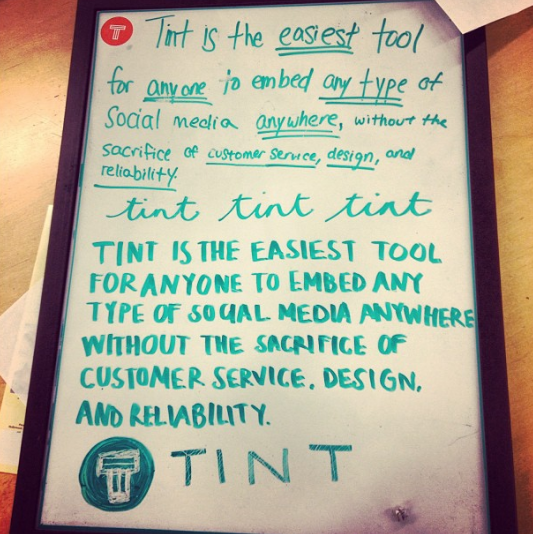 T Tint is the easiest tool
for anyone to embed any type of
Social media anywhere, without the
sacrifice of customer service, design, and
reliability.
tint tint tint
TINT IS THE EASIEST TOOL
FOR ANYONE TO EMBED ANY
TYPE OF SOCIAL MEDIA ANYWHERE
WITHOUT THE SACRIFICE OF
CUSTOMER SERVICE. DESIGN,
AND RELIABILITY.
T TINT